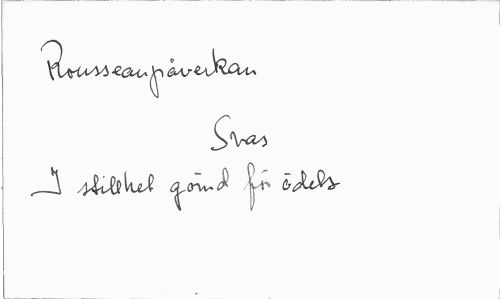 Rousseaupåverkan
Svas
I stillhet gömd för ödets